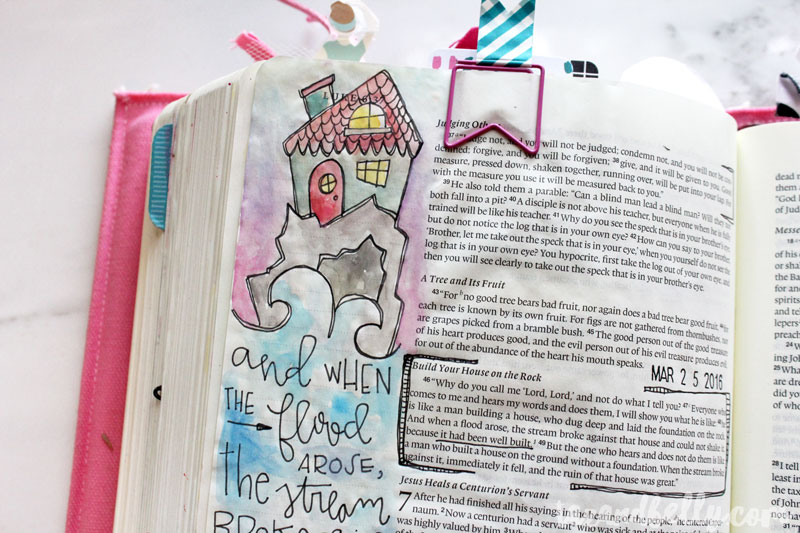 LUKE 6:37
and WHEN
THE flood
AROSE,
the stream
BROKE
Judging Oth
nge not, and you will not be judged; condemn not, and you will not be con-
demned; forgive, and you will be forgiven; 38 give, and it will be given to you. Good
measure, pressed down, shaken together, running over, will be put into your lap. For
with the measure you use it will be measured back to you."
39 He also told them a parable: "Can a blind man lead a blind man? Will they not
both fall into a pit? 40 A disciple is not above his teacher, but everyone when he is fully
trained will be like his teacher. 41 Why do you see the speck that is in your brother's eye,
but do not notice the log that is in your own eye? 42 How can you say to your brother,
'Brother, let me take out the speck that is in your eye,' when you yourself do not see the
log that is in your own eye? You hypocrite, first take the log out of your own eye, and
then you will see clearly to take out the speck that is in your brother's eye.
A Tree and Its Fruit
43 "For b no good tree bears bad fruit, nor again does a bad tree bear good fruit, 44 for
each tree is known by its own fruit. For figs are not gathered from thornbushes, nor
are grapes picked from a bramble bush. 45 The good person out of the good treasure
of his heart produces good, and the evil person out of his evil treasure produces evil,
for out of the abundance of the heart his mouth speaks.
Build Your House on the Rock
MAR 25 2016
46 "Why do you call me 'Lord, Lord,' and not do what I tell you? 47 Everyone who
comes to me and hears my words and does them, I will show you what he is like: 48 he
is like a man building a house, who dug deep and laid the foundation on the rock.
And when a flood arose, the stream broke against that house and could not shake it,
because it had been well built. 49 But the one who hears and does not do them is like
a man who built a house on the ground without a foundation. When the stream broke
against it, immediately it fell, and the ruin of that house was great."
Jesus Heals a Centurion's Servant
7 After he had finished all his sayings in the hearing of the people, he entered Caper-
naum. 2 Now a centurion had a servant who was sick and at the point of
was highly valued by him. 3 When